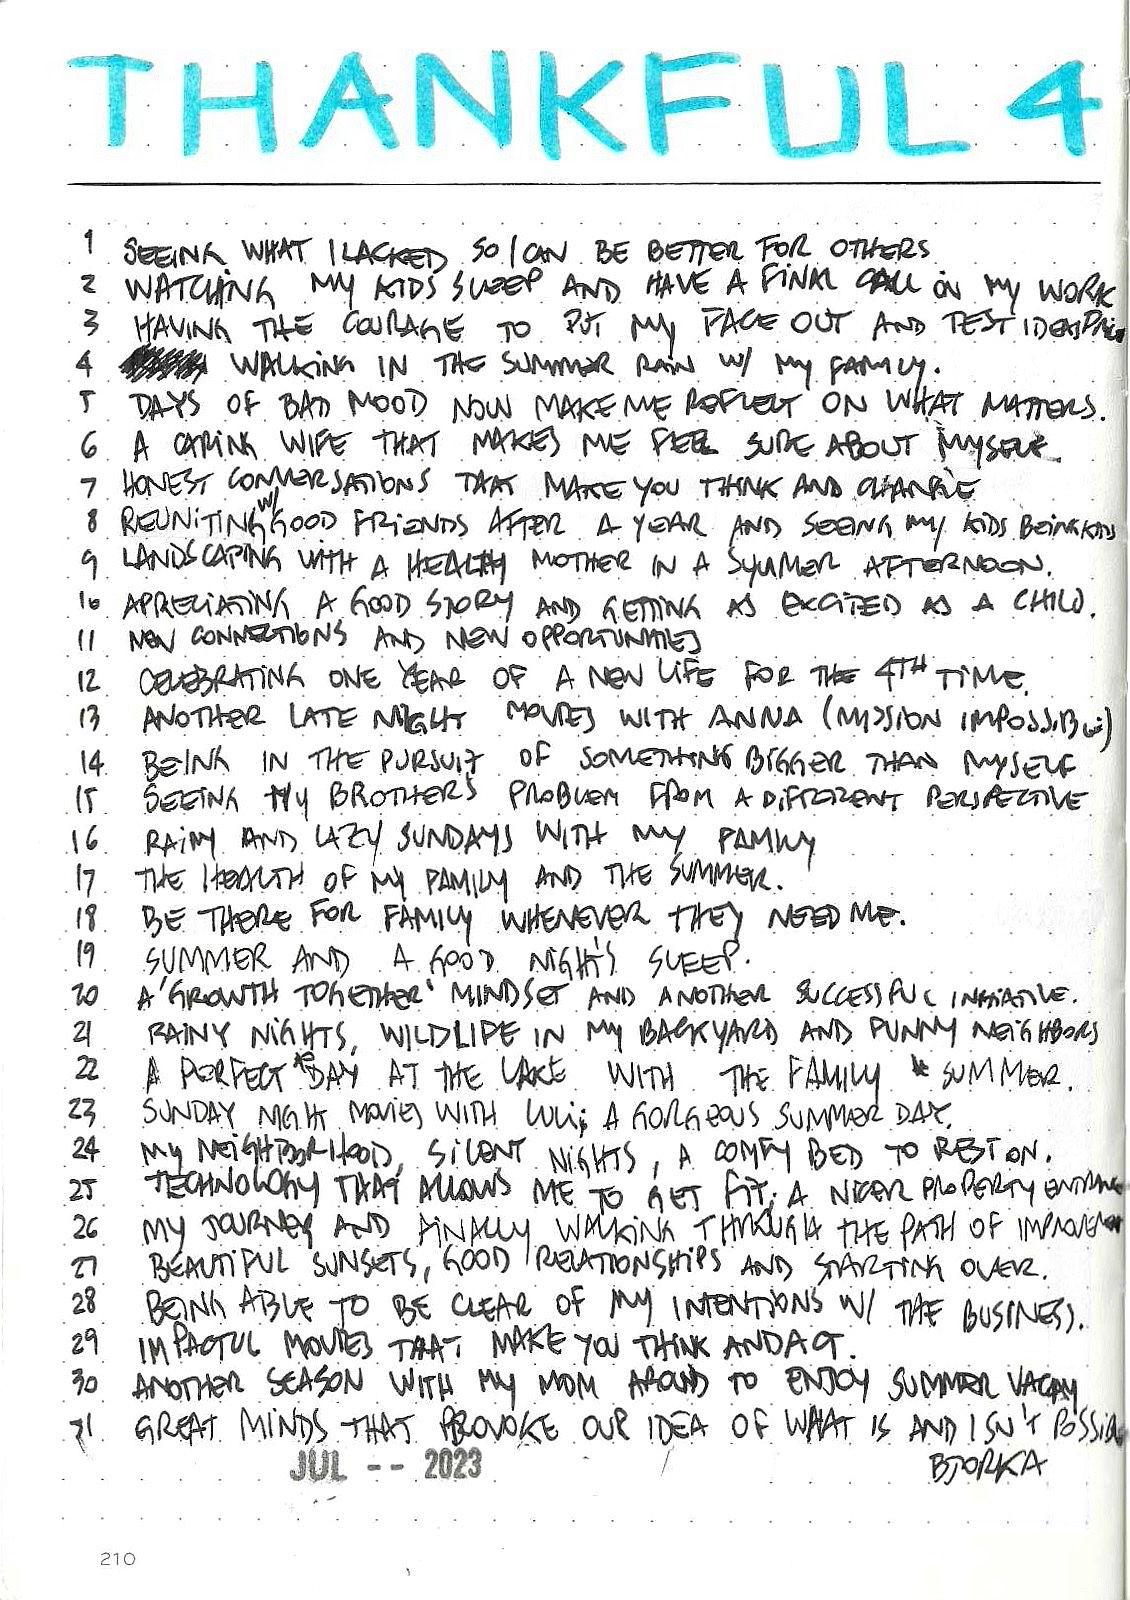 THANKFUL 4
1 SEEING WHAT I LACKED SO I CAN BE BETTER FOR OTHERS
2 WATCHING MY KIDS SLEEP AND HAVE A FINAL CALL ON MY WORK
3 HAVING THE COURAGE TO PUT MY FACE OUT AND TEST IDEAS
4 WALKING IN THE SUMMER RAIN W/ MY FAMILY.
5 DAYS OF BAD MOOD NOW MAKE ME REFLECT ON WHAT MATTERS.
6 A CARING WIFE THAT MAKES ME FEEL SURE ABOUT MYSELF.
7 HONEST CONVERSATIONS THAT MAKE YOU THINK AND CHANGE
8 REUNITING W/ GOOD FRIENDS AFTER A YEAR AND SEEING MY KIDS BEING KIDS
9 LANDSCAPING WITH A HEALTHY MOTHER IN A SYUMER AFTERNOON.
10 APRECIATING A GOOD STORY AND GETTING AS EXCITED AS A CHILD.
11 NEW CONNECTIONS AND NEW OPPORTUNITIES
12 CELEBRATING ONE YEAR OF A NEW LIFE FOR THE 4TH TIME.
13 ANOTHER LATE NIGHT MOVIES WITH ANNA (MISSION IMPOSSIBLE)
14 BEING IN THE PURSUIT OF SOMETHING BIGGER THAN MYSELF
15 SEEING MY BROTHERS PROBLEM FROM A DIFFERENT PERSPECTIVE
16 RAINY AND LAZY SUNDAYS WITH MY FAMILY
17 THE HEALTH OF MY FAMILY AND THE SUMMER.
18 BE THERE FOR FAMILY WHENEVER THEY NEED ME.
19 SUMMER AND A GOOD NIGHT'S SLEEP.
20 A 'GROWTH TOGETHER' MINDSET AND ANOTHER SUCCESSFUL INITIATIVE.
21 RAINY NIGHTS, WILDLIFE IN MY BACKYARD AND FUNNY NEIGHBORS
22 A PERFECT DAY AT THE LAKE WITH THE FAMILY SUMMER.
23 SUNDAY NIGHT MOVIES WITH LULI; A GORGEOUS SUMMER DAY.
24 MY NEIGHBORHOOD, SILENT NIGHTS, A COMFY BED TO REST ON.
25 TECHNOLOGY THAT ALLOWS ME TO GET FIT; A NICER PROPERTY ENTRANCE
26 MY JOURNEY AND FINALLY WALKING THROUGH THE PATH OF IMPROVEMENT
27 BEAUTIFUL SUNSETS, GOOD RELATIONSHIPS AND STARTING OVER.
28 BEING ABLE TO BE CLEAR OF MY INTENTIONS W/ THE BUSINESS.
29 IMPACTUL MOVIES THAT MAKE YOU THINK AND ACT.
30 ANOTHER SEASON WITH MY MOM AROUND TO ENJOY SUMMER VACAY
31 GREAT MINDS THAT PROVOKE OUR IDEA OF WHAT IS AND ISN'T POSSIBLE
JUL -- 2023 BJORKA
210